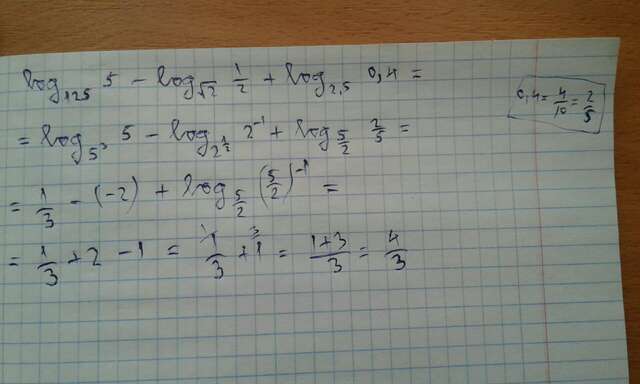 log₁₂₅ 5 − log_√2 1/2 + log₂,₅ 0,4 =
0,4 = 4/10 = 2/5
= log_5³ 5 − log_2^(1/2) 2⁻¹ + log_5/2 2/5 =
= 1/3 − (−2) + log_5/2 (5/2)⁻¹ =
= 1/3 + 2 − 1 = 1/3 + 1 = (1+3)/3 = 4/3